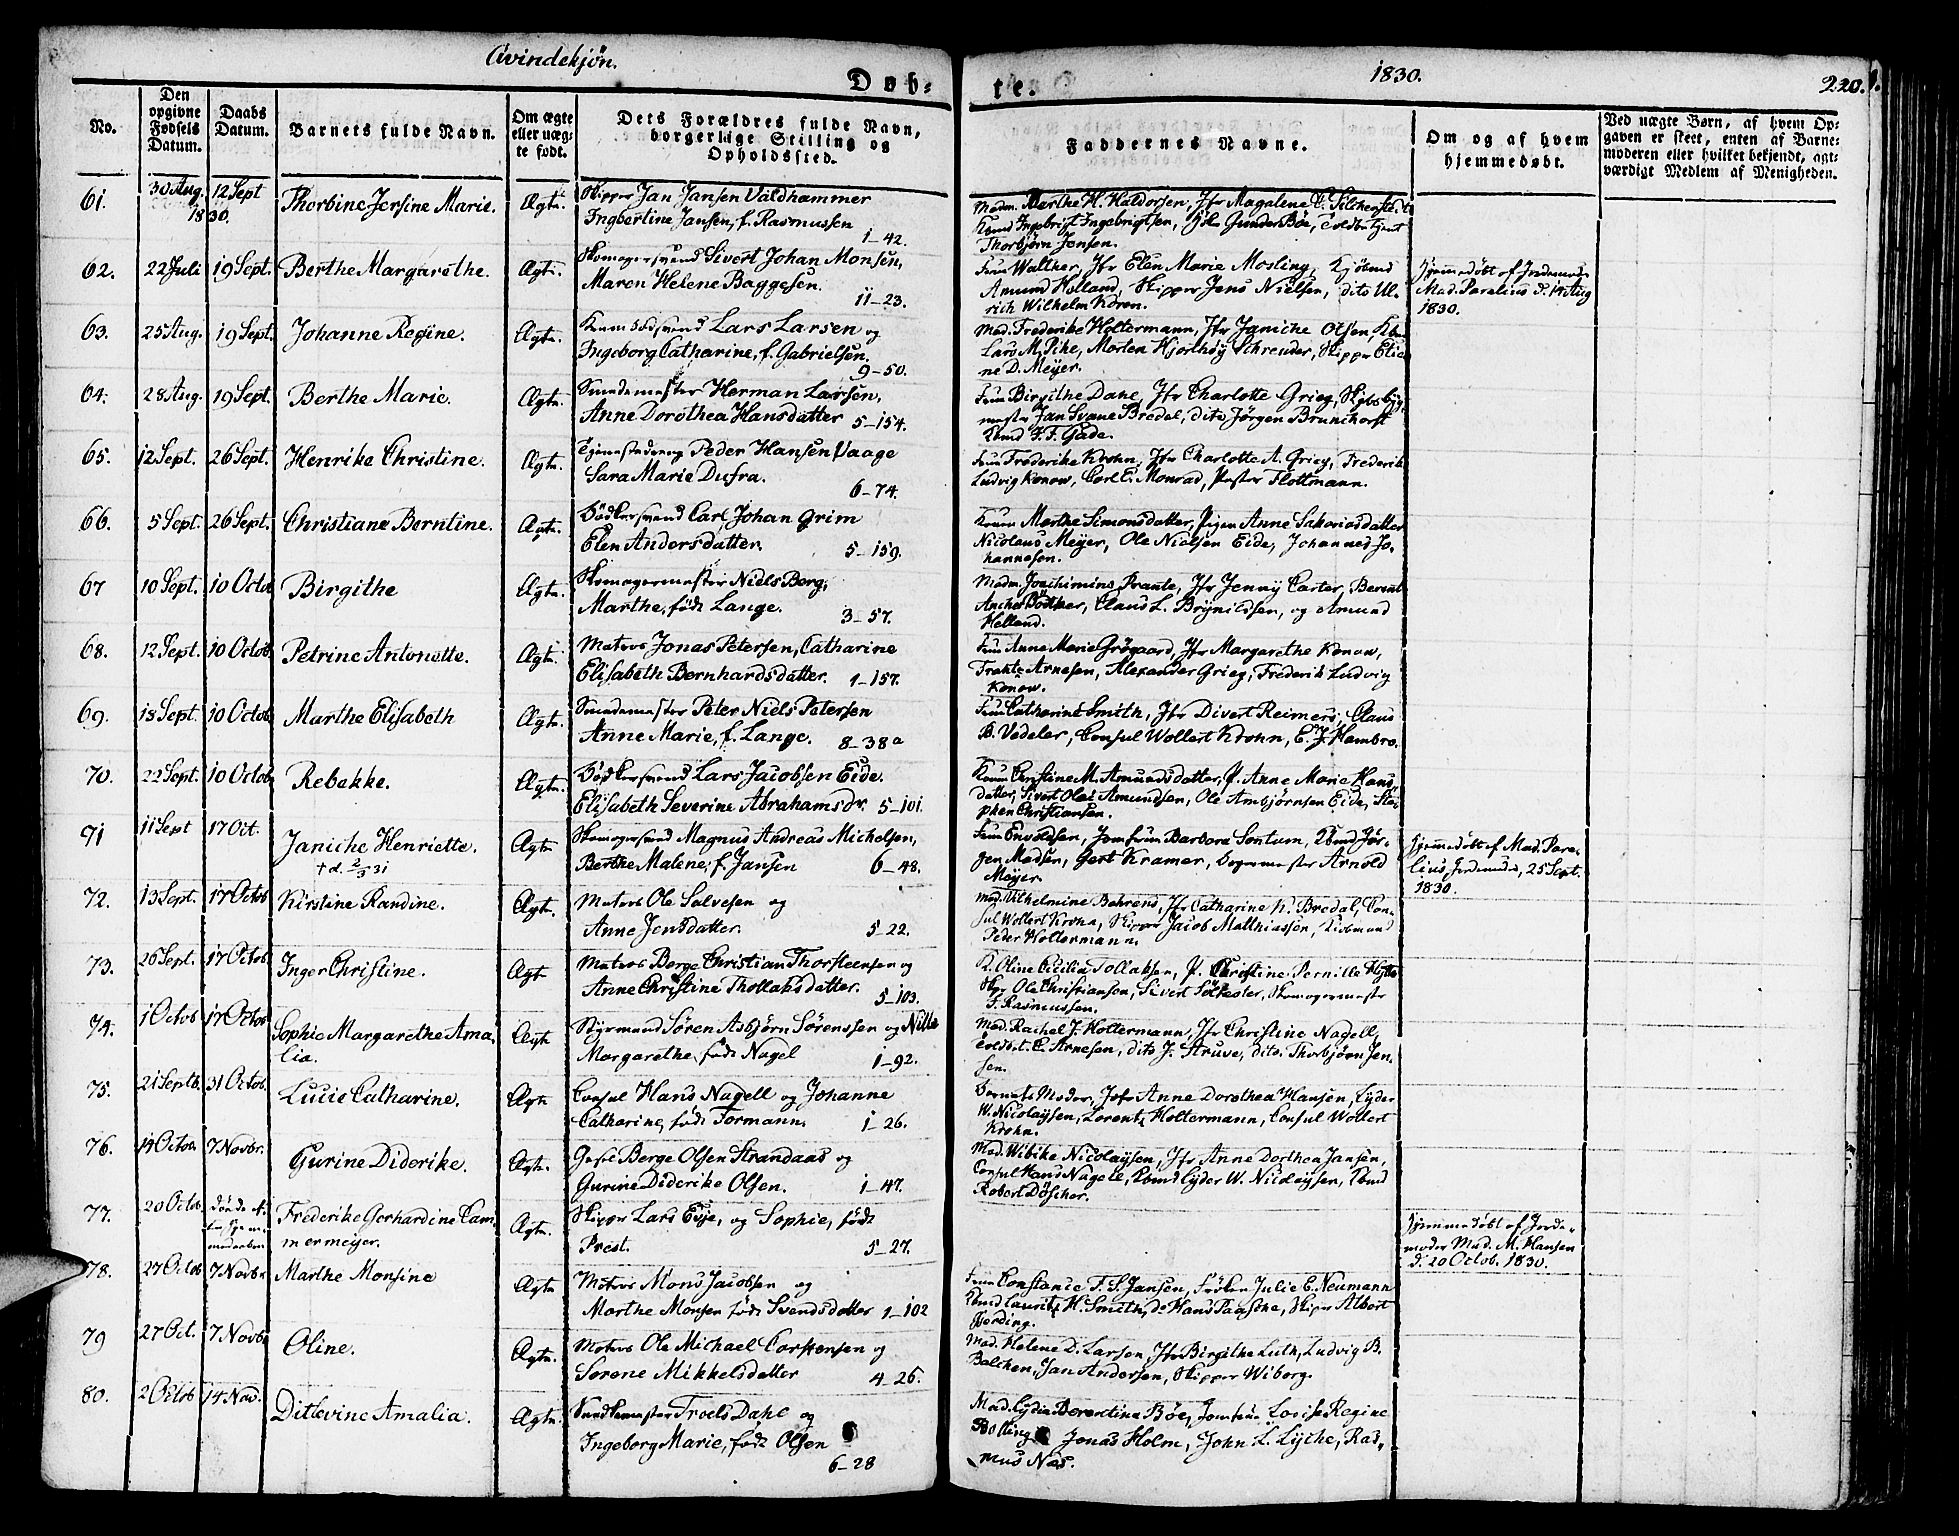 Qvindekjøn.
Døb-
te.
1830.
220.
No.
Den opgivne Fødsels Datum.
Daabs Datum.
Barnets fulde Navn.
Om ægte eller uægte født.
Dets Forældres fulde Navn, borgerlige Stilling og Opholdssted.
Faddernes Navne.
Om og af hvem hjemmedøbt.
Ved uægte Børn, af hvem Opgaven er skeet, enten af Barnemoderen eller hvilket bekjendt, agtværdigt Medlem af Menigheden.
61. 30 Aug. 1830. 12 Sept Thorbine Jersine Marie. Ægte. Skipper Jan Jansen Valdhammer
Ingbertine Jansen, f. Rasmussen 1-42.
Madm. Berthe H. Haldorsen, Jfr Magalene
Ingebrigt Ingebrigtsen, Gunder Böe,
Thorbjørn Jensen.
62. 22 Juli 19 Sept. Berthe Margarethe. Ægte. Skomagersvend Sivert Johan Monsen,
Maren Helene Baggesen. 11-23.
Fru Walther, Jfr Elen Marie Mosling, Kjöbmd
Amund Helland, Skipper Jens Nielsen, dito Ul-
rich Wilhelm Koren.
Hjemmedöbt af Jordemod.
Mad. Paralius d. 14 Aug
1830.
63. 25 Aug. 19 Sept. Johanne Regine. Ægte. Lars Larsen og
Ingeborg Catharine, f. Gabrielsen. 9-50.
Mad. Frederike Holtermann, Jfr Janiche Olsen,
Lars M. Pihe, Morten Hjorthöy Schreuder, Skipper Elia-
ne D. Meyer.
64. 28 Aug. 19 Sept. Berthe Marie. Ægte. Smedemester Herman Larsen,
Anne Dorothea Hansdatter 5-154.
Fru Birgithe Dahl, Jfr Charlotte Grieg, Skibsbyg-
mester Jan Svane Bredal, dito Jörgen Brunchorst
Kbmd F. F. Gade.
65. 12 Sept. 26 Sept. Henrike Christine. Ægte. Peder Hansen Vaage
Sara Marie Dufra. 6-74.
Fru Frederike Krohn, Jfr Charlotte A. Grieg, Frederik
Ludvig Konow, Carl C. Monrad, Pastor Flottmann.
66. 5 Sept. 26 Sept. Christiane Berntine. Ægte. Bödkersvend Carl Johan Grim
Elen Andersdatter. 5-159.
Konen Marthe Simonsdatter, Pigen Anne Sakariasdatter
Nicolaus Meyer, Ole Nielsen Eide, Johannes Jo-
hannesen.
67 10 Sept. 10 Octo Birgithe Ægte. Skomagermester Niels Berg,
Marthe, född Lange. 3-57.
Madm. Joachimine Prante, Jfr Jenny Carter, Berent
Ancher Bödtker, Claus L. Brynildsen, og Amund
Helland.
68. 12 Sept. 10 Octob Petrine Antonette. Ægte. Matros Jonas Petersen, Catharine
Elisabeth Bernhardsdatter. 1-157.
Fru Anne Marie Grögaard, Jfr Margarethe Konow,
Arnesen, Alexander Grieg, Frederik Ludvig
Konow.
69. 18 Sept. 10 Octob Marthe Elisabeth Ægte. Smedemester Peter Niels Petersen
Anne Marie, f. Lange. 8-38a
Fru Catharine Smith, Jfr Divert Reimers, Claus
B. Vedeler, Consul Wollert Krohn, E. J. Hambro.
70. 22 Sept. 10 Octob Rebekke. Ægte. Bödkersvend Lars Jacobsen Eide.
Elisabeth Severine Abrahamsdr. 5-101.
Konen Christine M. Amundsdatter, P. Anne Marie Hans-
datter, Sivert Olai Amundsen, Ole Ambjörnsen Eide, Ste-
phen Christiansen.
91 11 Sept 17 Oct. Janiche Henriette. Ægte Skomagersvend Magnus Andreas Michelsen,
† d. 2/5 31
Berthe Malene, f. Jansen 6-48.
Fru Envoldsen, Jomfrue Barbara Sontum, Kbmd Jör-
gen Madsen, Gert Kramer, Bagermester Arnold
Meyer
Hjemmedöbt af Mad. Para-
lius, Jordemoder, 25 Sept.
1830.
72. 13 Sept. 17 Octob Kirstine Randine. Ægte. Matros Ole Salvesen og
Anne Jensdatter. 5-22.
Mad. Vilhelmine Behrens, Jfr Catharine K. Bredal, Con-
sul Wollert Krohn, Skipper Jacob Matthiassen, Kiobmand
Peder Holtermann.
73. 26 Sept. 17 Octob. Inger Christine. Ægte Matros Berge Christian Thorsteensen og
Anne Christine Thollaksdatter. 5-103.
K. Oline Cecilia Tollaksen, P. Christine Pernille
Ole Christiansen, Sivert Sölfester, Skomagermester
F. Rasmussen.
74. 1 Octob 17 Octob. Sophie Margarethe Ama-
lia. Ægte Styrmand Sören Asbjörn Sörenssen og Nille
Margarethe, född Nagel 1-92.
Mad. Rachel J. Holtermann, Jfr Christine Nagell,
Toldbt. C. Arnesen, dito J. Struve, dito Thorbjörn Jen-
sen.
75. 21 Septb. 31 Octob. Lucie Catharine. Ægte Consul Hans Nagell og Johanne
Catharine, född Formann. 1-26.
Barnets Moder, Jofr Anne Dorothea Hansen, Lyder
W. Nicolaysen, Lorentz Holtermann, Consul Wollert
Krohn.
76. 14 Octob. 7 Novbr. Gurine Diderike. Ægte. Berge Olsen Strandaas og
Gurine Diderike Olsen. 1-47.
Mad. Wibike Nicolaysen, Jfr Anne Dorthea Jansen,
Consul Hans Nagell, Kbmd Lyder W. Nicolaysen, Kbmd
Robert Döscher.
77. 20 Octob. Frederike Gerhardine Cam-
mermeyer. Ægte. Skipper Lars Edje, og Sophie, född
Prest. 5-27.
Hjemmedöbt af Jorde-
moder Mad. M. Hansen
d. 20 Octob. 1830.
78. 27 Octob 7 Novbr Marthe Monsine Ægte Matros Mons Jacobsen og
Marthe Monsen född Svendsdatter 1-102
Fru Constance F. S. Jansen, Fröken Julie E. Neumann
Kbmd Lauritz H. Smith, do Hans Paasche, Skipper Albert
Herding.
79 27 Oct. 7 Novbr Oline. Ægte. Matros Ole Michael Carstensen og
Sörene Mikkelsdatter 4-26.
Mad. Helene D. Larsen, Jfr Birgithe Luth, Ludvig B.
Balchen, Jan Andersen, Skipper Wiborg.
80. 2 Octob 14 Nov. Ditlevine Amalia. Ægte. Troels Dahl og
Ingeborg Marie, född Olsen 6-28
Mad. Lydia Berentine Böe, Jomfrue Lovise Regine
Bolling, Jonas Holm, John L. Lythe, Ras-
mus Nas.